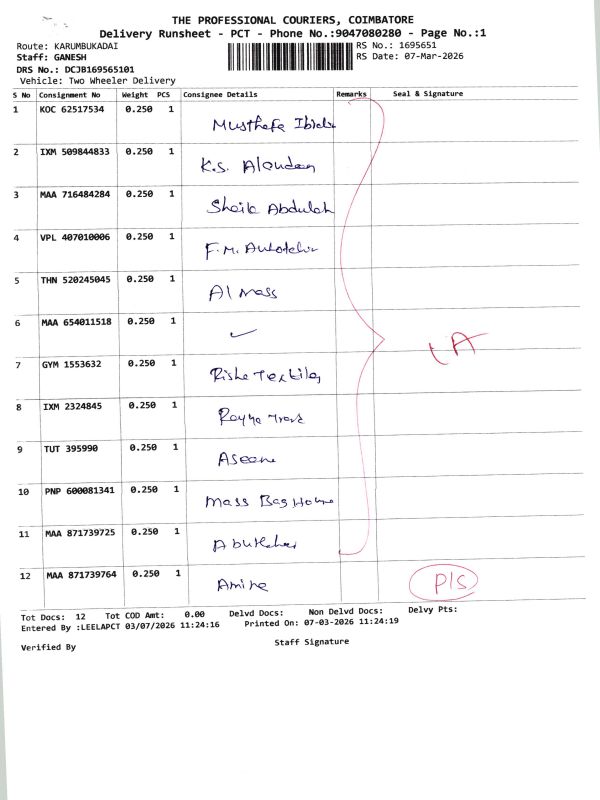 THE PROFESSIONAL COURIERS, COIMBATORE
Delivery Runsheet - PCT - Phone No.:9047080280 - Page No.:1
Route: KARUMBUKADAI
RS No.: 1695651
Staff: GANESH
RS Date: 07-Mar-2026
DRS No.: DCJB169565101
Vehicle: Two Wheeler Delivery
S No Consignment No Weight PCS Consignee Details Remarks Seal & Signature
1 KOC 62517534 0.250 1 Musthafa
2 IXM 509844833 0.250 1 K.S.
3 MAA 716484284 0.250 1 Shaik Abdulah
4 VPL 407010006 0.250 1 F.M.
5 THN 520245045 0.250 1 Al mass
6 MAA 654011518 0.250 1
7 GYM 1553632 0.250 1 Textiles
8 IXM 2324845 0.250 1
9 TUT 395990 0.250 1
10 PNP 600081341 0.250 1 Mass Bag Home
11 MAA 871739725 0.250 1
12 MAA 871739764 0.250 1 P/S
Tot Docs: 12 Tot COD Amt: 0.00 Delvd Docs: Non Delvd Docs: Delvy Pts:
Entered By :LEELAPCT 03/07/2026 11:24:16 Printed On: 07-03-2026 11:24:19
Verified By
Staff Signature